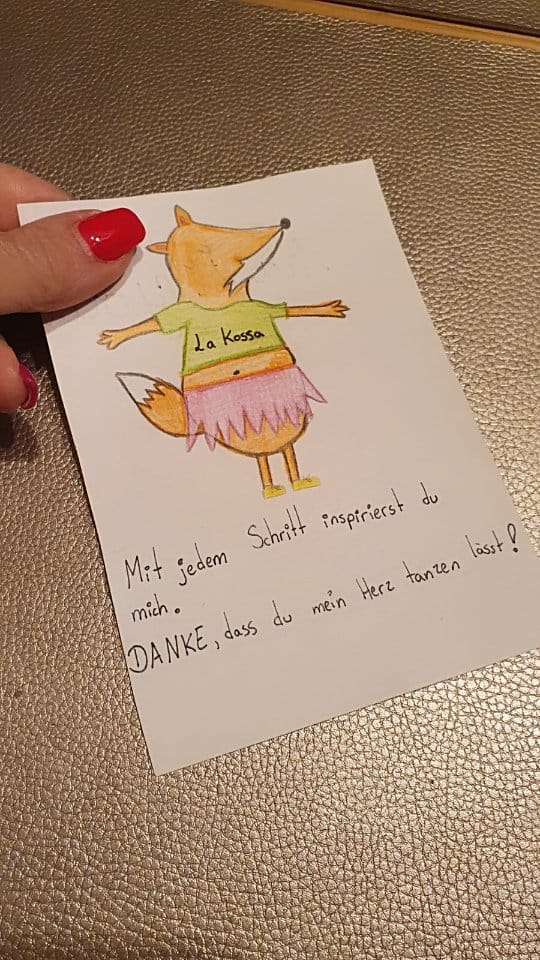 La Kossa
Mit jedem Schritt inspirierst du
mich.
DANKE, dass du mein Herz tanzen lässt!